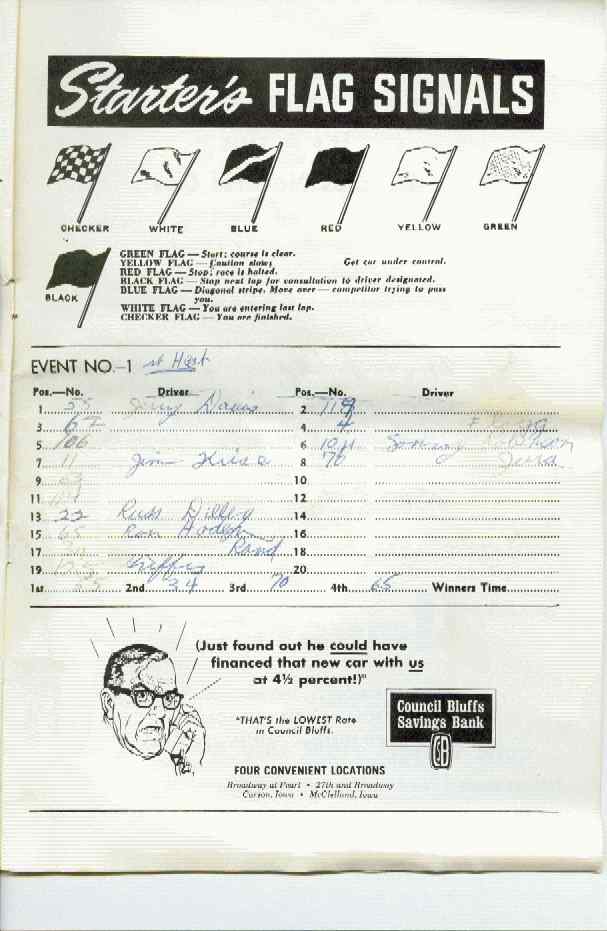 Starter's FLAG SIGNALS
CHECKER WHITE BLUE RED YELLOW GREEN
GREEN FLAG — Start; course is clear.
YELLOW FLAG — Caution slow; Get car under control.
RED FLAG — Stop; race is halted.
BLACK FLAG — Stop next lap for consultation to driver designated.
BLUE FLAG — Diagonal stripe. Move over — competitor trying to pass
you.
BLACK
WHITE FLAG — You are entering last lap.
CHECKER FLAG — You are finished.
EVENT NO.–1 st Heat
Pos.—No. Driver Pos.—No. Driver
1 55 Davis 2
3 67 4 4
5 106 6 Sonny
7 11 Jim 8 70
9 10
11 12
13 22 Russ 14
15 65 Ron 16
17 Rand 18
19 20
1st 55 2nd 34 3rd 70 4th 65 Winners Time
(Just found out he could have
financed that new car with us
at 4½ percent!)"
"THAT'S the LOWEST Rate
in Council Bluffs.
Council Bluffs
Savings Bank
CSB
FOUR CONVENIENT LOCATIONS
Broadway at Pearl • 27th and Broadway
Carson, Iowa • McClelland, Iowa